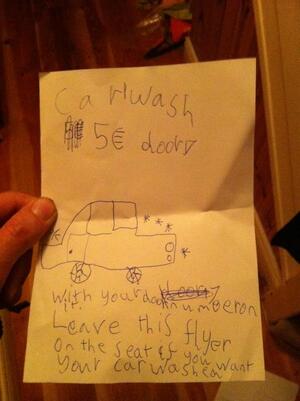 Carwash
5€
With your doornumberon
it.
Leave this flyer
On the seat if you want
your car washed